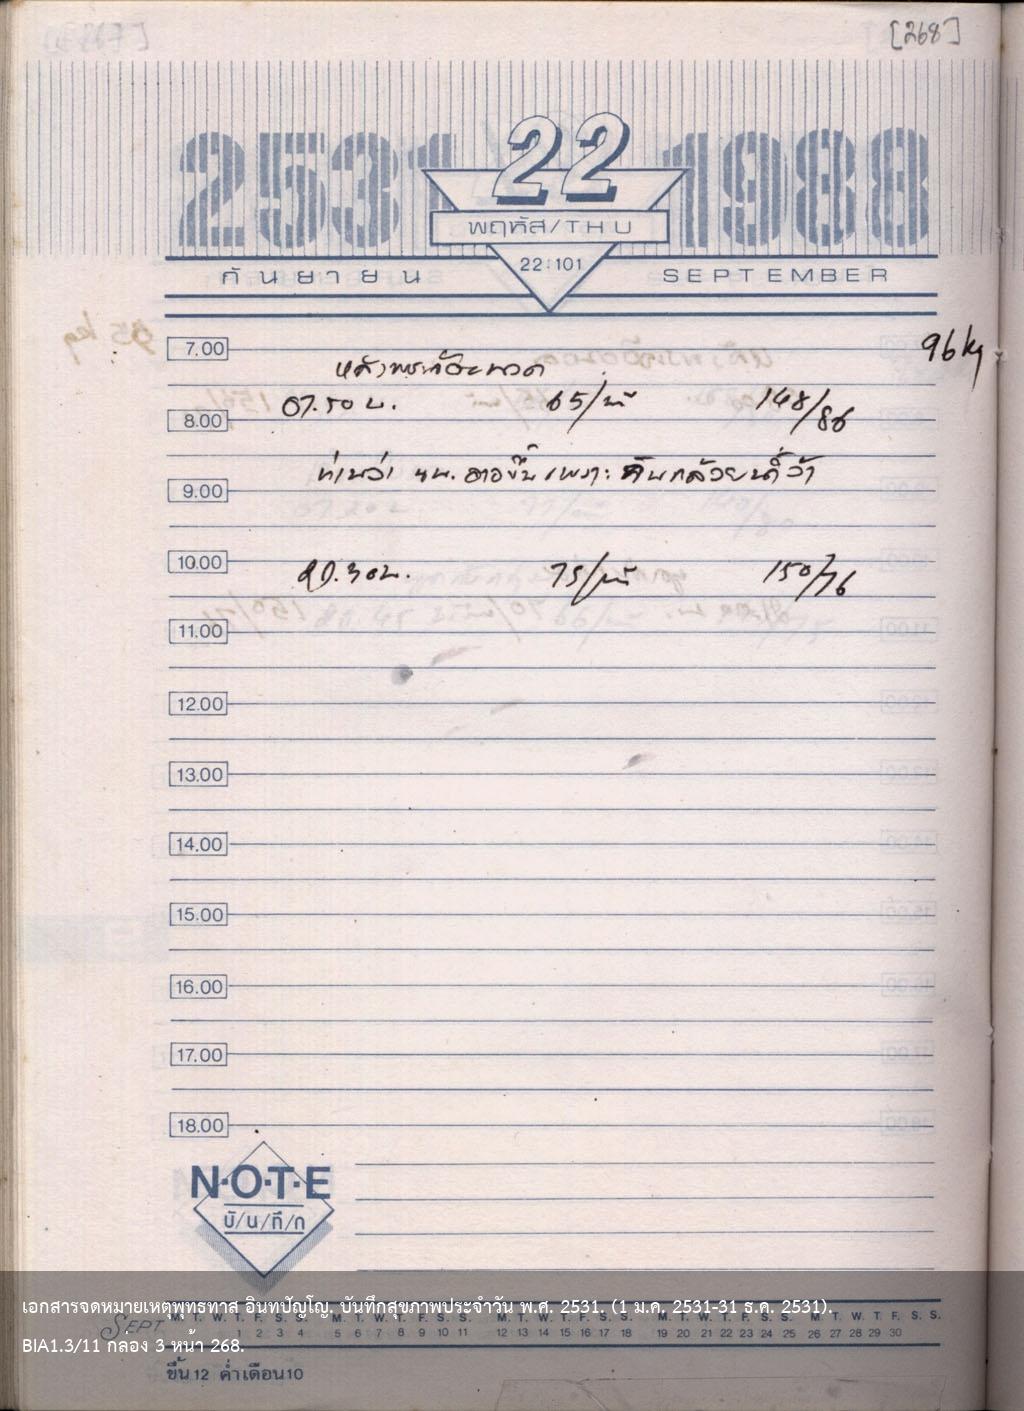 [268]
2531 22 1988
พฤหัส/THU
22:101
กันยายน SEPTEMBER
7.00
96 kg
07.50 น. 65/นาที 148/86
8.00
ท่านว่า นน. อาจขึ้น เพราะ ฉันกล้วยน้ำว้า
9.00
10.00
75/นาที 150/76
11.00
12.00
13.00
14.00
15.00
16.00
17.00
18.00
N·O·T·E
บั/น/ทึ/ก
เอกสารจดหมายเหตุพุทธทาส อินทปัญโญ. บันทึกสุขภาพประจำวัน พ.ศ. 2531. (1 ม.ค. 2531-31 ธ.ค. 2531).
SEPT. M. T. W. T. F. S. S. M. T. W. T. F. S. S. M. T. W. T. F. S. S. M. T. W. T. F. S. S. M. T. W. T. F. S. S.
1 2 3 4 5 6 7 8 9 10 11 12 13 14 15 16 17 18 19 20 21 22 23 24 25 26 27 28 29 30
BIA1.3/11 กล่อง 3 หน้า 268.
ขึ้น 12 ค่ำ เดือน 10